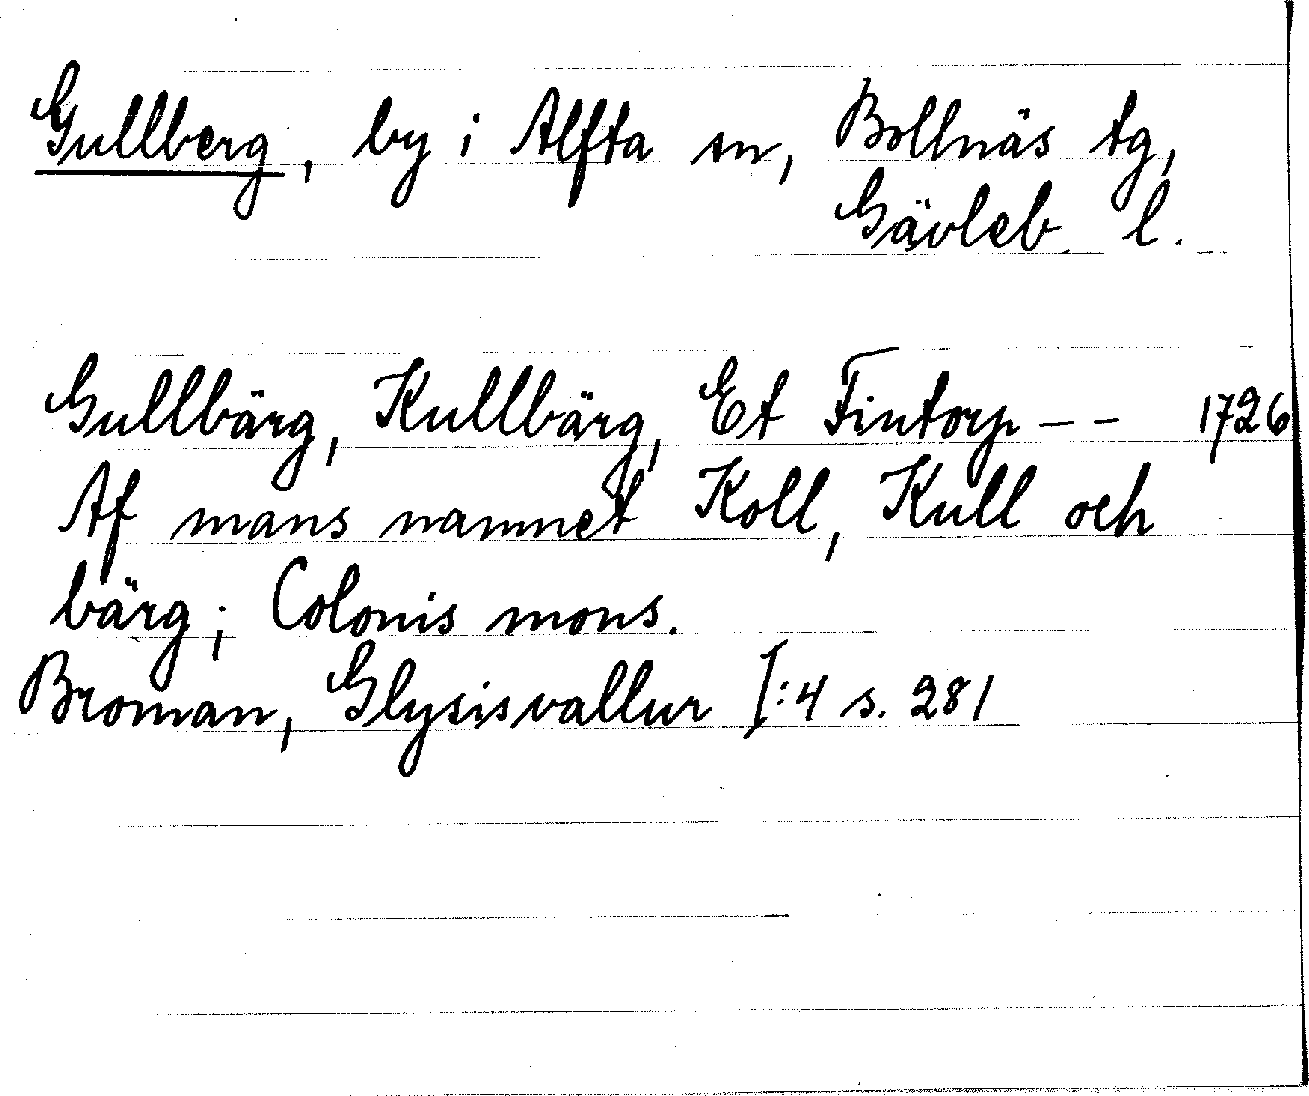 Gullberg, by i Alfta sn, Bollnäs tg,
Gävleb. l.
Gullbärg, Kullbärg, Et Fintorp -- 1726
Af mans namnet Koll, Kull och
bärg; Colonis mons.
Broman, Glysisvallur I:4 s. 281